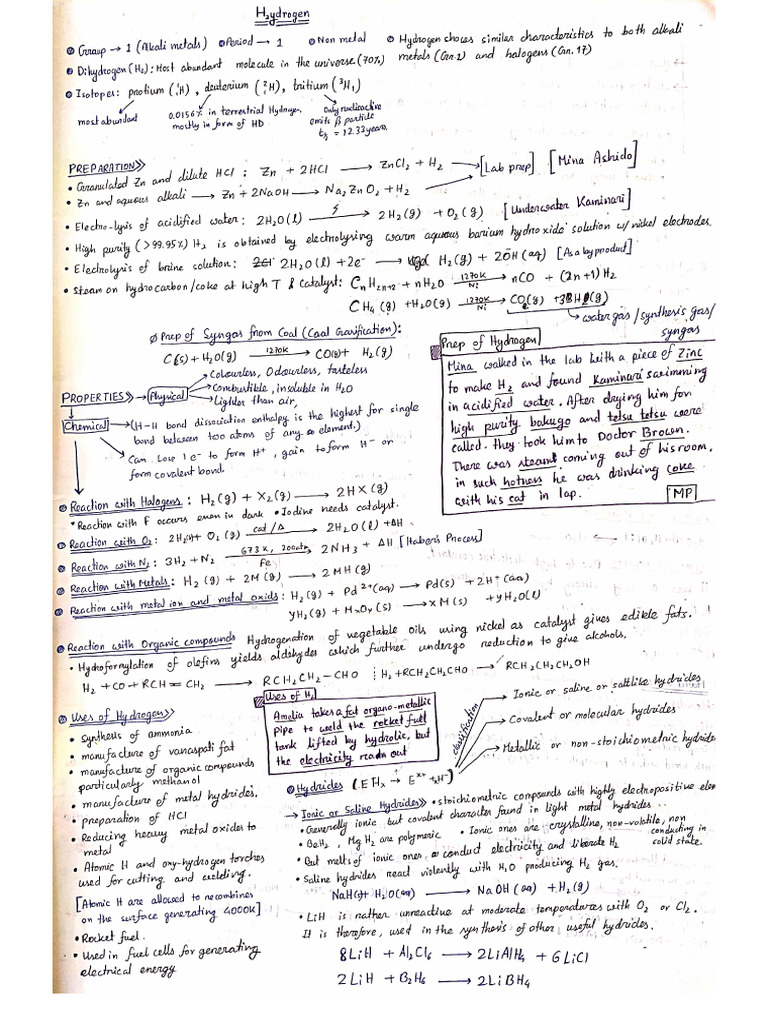 Hydrogen
Group → 1 (Alkali metals) Period → 1 Non metal
Hydrogen shows similar characteristics to both alkali
metals (Gr.1) and halogens (Gr. 17)
Dihydrogen (H₂): Most abundant molecule in the universe (70%)
Isotopes: protium (¹₁H), deuterium (²₁H), tritium (³H₁)
most abundant
0.0156% in terrestrial Hydrogen
mostly in form of HD
Only radioactive
emits β particle
t½ = 12.33 years
PREPARATION>>
• Granulated Zn and dilute HCl: Zn + 2HCl → ZnCl₂ + H₂
• Zn and aqueous alkali → Zn + 2NaOH → Na₂ZnO₂ + H₂
[Lab prep] [Mina Ashido]
• Electro-lysis of acidified water: 2H₂O(l) → 2H₂(g) + O₂(g) [Underwater Kaminari]
• High purity (>99.95%) H₂ is obtained by electrolysing warm aqueous barium hydroxide solution w/ nickel electrodes.
• Electrolysis of brine solution: 2H₂O(l) + 2e⁻ → H₂(g) + 2OH(aq) [As a byproduct]
• Steam on hydrocarbon/coke at high T & Catalyst: CnH2n+2 + nH₂O 1270K Ni → nCO + (2n+1)H₂
CH₄(g) + H₂O(g) 1270K Ni → CO(g) + 3H₂(g)
water gas/synthesis gas/
syngas
Prep of Syngas from Coal (Coal Gasification):
C(s) + H₂O(g) 1270K → CO(g) + H₂(g)
PROPERTIES>> → Physical
Colourless, Odourless, tasteless
Combustible, insoluble in H₂O
Lighter than air,
Chemical
(H–H bond dissociation enthalpy is the highest for single
bond between two atoms of any element.)
Can lose 1e⁻ to form H⁺, gain to form H⁻ or
form covalent bond.
Prep of Hydrogen
Mina walked in the lab with a piece of Zinc
to make H₂ and found Kaminari swimming
in acidified water. After drying him for
high purity bakugo and tetsu tetsu were
called. they took him to Doctor Brown.
There was steam coming out of his room,
in such hotness he was drinking coke
with his cat in lap.
MP
Reaction with Halogens: H₂(g) + X₂(g) → 2HX(g)
• Reaction with F occurs even in dark • Iodine needs catalyst.
Reaction with O₂: 2H₂(g) + O₂(g) cat/Δ → 2H₂O(l) + ΔH
Reaction with N₂: 3H₂ + N₂ 673K, 200atm Fe → 2NH₃ + ΔH [Haber's Process]
Reaction with Metals: H₂(g) + 2M(g) → 2MH(g)
Reaction with metal ion and metal oxids: H₂(g) + Pd²⁺(aq) → Pd(s) + 2H⁺(aq)
yH₂(g) + MxOy(s) → xM(s) + yH₂O(l)
Reaction with Organic compounds Hydrogenation of vegetable oils using nickel as catalyst gives edible fats.
• Hydroformylation of olefins yields aldehydes which further undergo reduction to give alcohols.
H₂ + CO + RCH=CH₂ → RCH₂CH₂–CHO ; H₂ + RCH₂CH₂CHO → RCH₂CH₂CH₂OH
Uses of H₂
Amelia takes a fat organo-metallic
pipe to weld the rocket full
tank lifted by hydrolic, but
the electricity ran out
Uses of Hydrogen>>
• Synthesis of ammonia
• manufacture of vanaspati fat
• manufacture of organic compounds
particularly methanol
• manufacture of metal hydrides,
• preparation of HCl
• Reducing heavy metal oxides to
metal
• Atomic H and oxy-hydrogen torches
used for cutting and welding.
[Atomic H are allowed to recombines
on the surface generating 4000K]
• Rocket fuel.
• Used in fuel cells for generating
electrical energy
Hydrides (EHx → Eˣ⁺ + H⁻)
classification
Ionic or saline or saltlike hydrides
Covalent or molecular hydrides
Metallic or non-stoichiometric hydride
→ Ionic or Saline Hydrides>> • stoichiometric compounds with highly electropositive ele
• Generally ionic but covalent character found in light metal hydrides
• BeH₂, MgH₂ are polymeric • Ionic ones are crystalline, non-volatile, non
conducting in
solid state.
• But melts of ionic ones conduct electricity and liberate H₂
• Saline hydrides react violently with H₂O producing H₂ gas.
NaH(s) + H₂O(aq) → NaOH(aq) + H₂(g)
• LiH is rather unreactive at moderate temperatures with O₂ or Cl₂.
It is therefore, used in the synthesis of other useful hydrides.
8LiH + Al₂Cl₆ → 2LiAlH₄ + 6LiCl
2LiH + B₂H₆ → 2LiBH₄